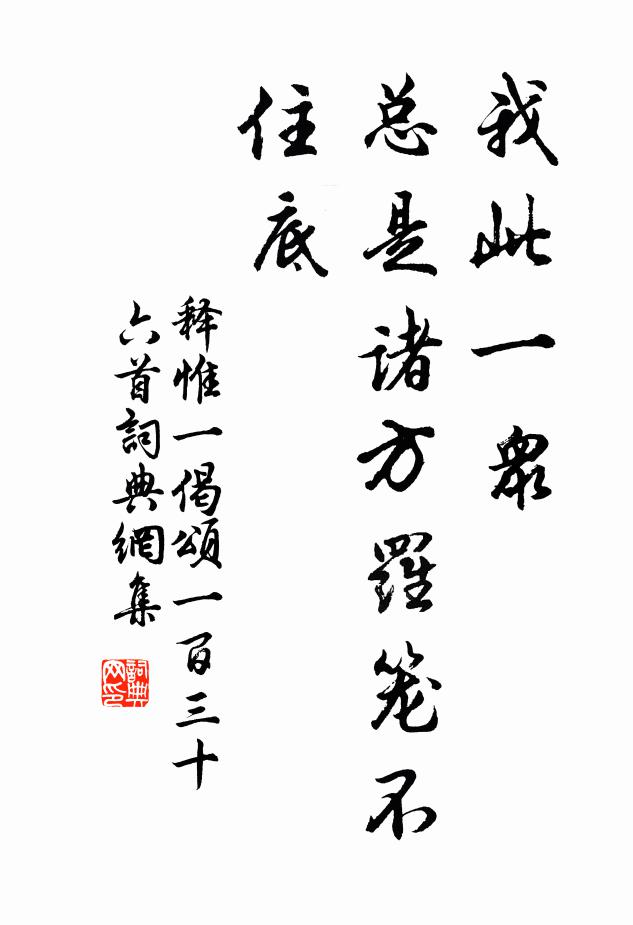 我此一衆
总是諸方羅笼不
住底
释惟一偈頌一百三十
六首詞典網集
詞典
网印